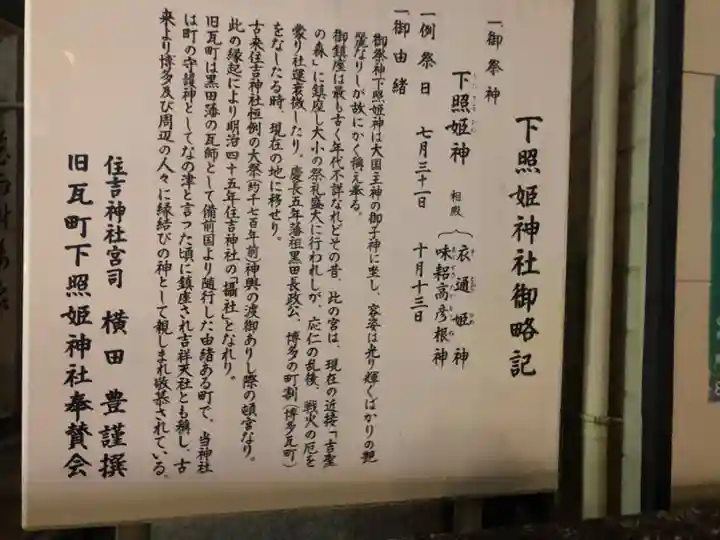 下照姫神社御略記
一御祭神
下照姫神 相殿 衣通姫神
味耜高彦根神
一例祭日 七月三十一日 十月十三日
一御由緒
御祭神下照姫神は大国主神の御子神に坐し、容姿は光り輝くばかりの艶
麗なりしが故にかく稱え奉る。
御鎮座は最も古く年代不詳なれどその昔、此の宮は、現在の近接「吉聖
の森」に鎮座し大小の祭礼盛大に行われしが、応仁の乱後、戦火の厄を
蒙り社運衰微したり。慶長五年藩祖黒田長政公、博多の町割(博多瓦町)
をなしたる時、現在の地に移せり。
古来住吉神社恒例の大祭(約千七百年前)神輿の渡御ありし際の頓宮なり。
此の縁起により明治四十五年住吉神社の「攝社」となれり。
旧瓦町は黒田藩の瓦師として備前国より随行した由緒ある町で、当神社
は町の守護神としてなの津と言った頃に鎮座され吉祥天社とも稱し、古
来より博多及び周辺の人々に縁結びの神として親しまれ敬慕されている。
住吉神社宮司 横田豊謹撰
旧瓦町下照姫神社奉賛会